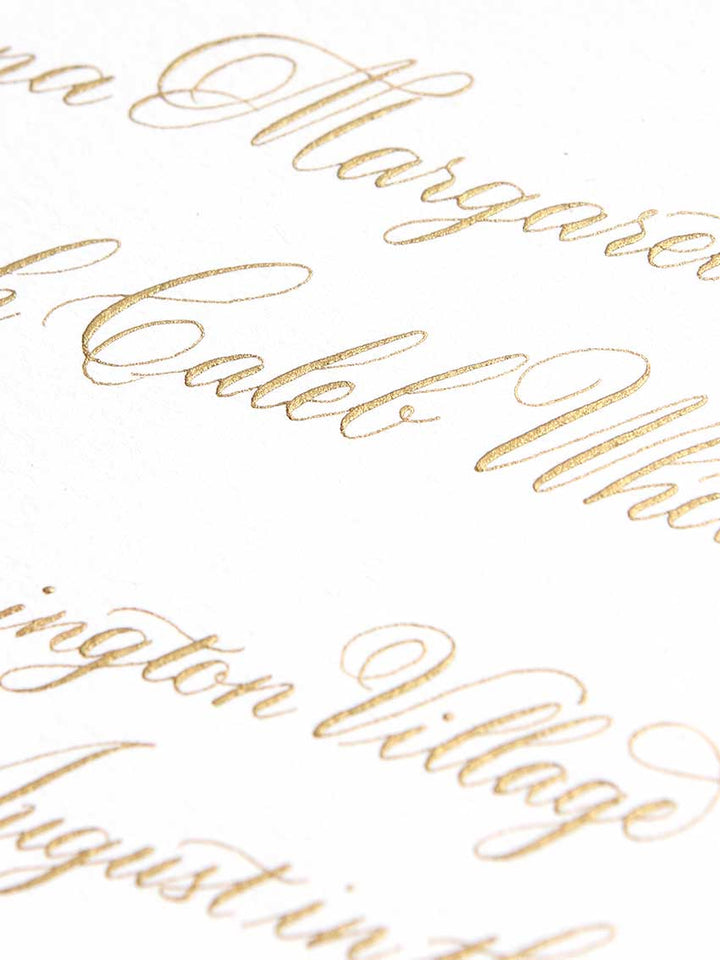 na Margaret
Caleb Wh
ington Village
August in th